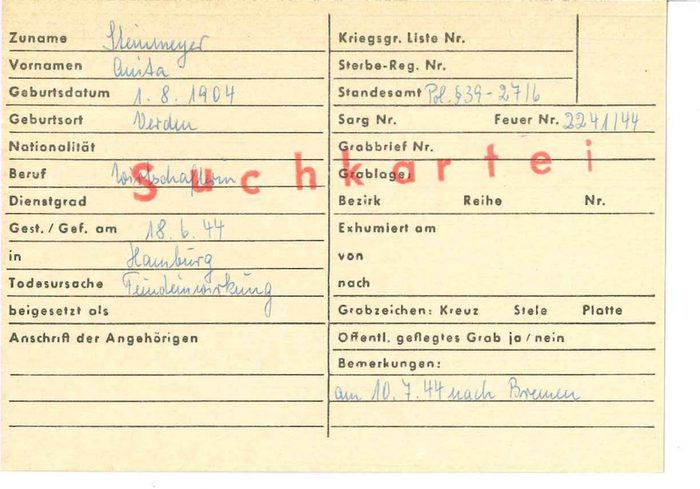 Zuname Steinmeyer
Vornamen Anita
Geburtsdatum 1.8.1904
Geburtsort Verden
Nationalität
Beruf Wirtschafterin
Dienstgrad
Gest. / Gef. am 18.6.44
in Hamburg
Todesursache Feindeinwirkung
beigesetzt als
Anschrift der Angehörigen
Suchkartei
Kriegsgr. Liste Nr.
Sterbe-Reg. Nr.
Standesamt Pol. § 39-27/6
Sarg Nr. Feuer Nr. 2241/44
Grabbrief Nr.
Grablage:
Bezirk Reihe Nr.
Exhumiert am
von
nach
Grabzeichen: Kreuz Stele Platte
Öffentl. gepflegtes Grab ja / nein
Bemerkungen:
am 10.7.44 nach Bremen